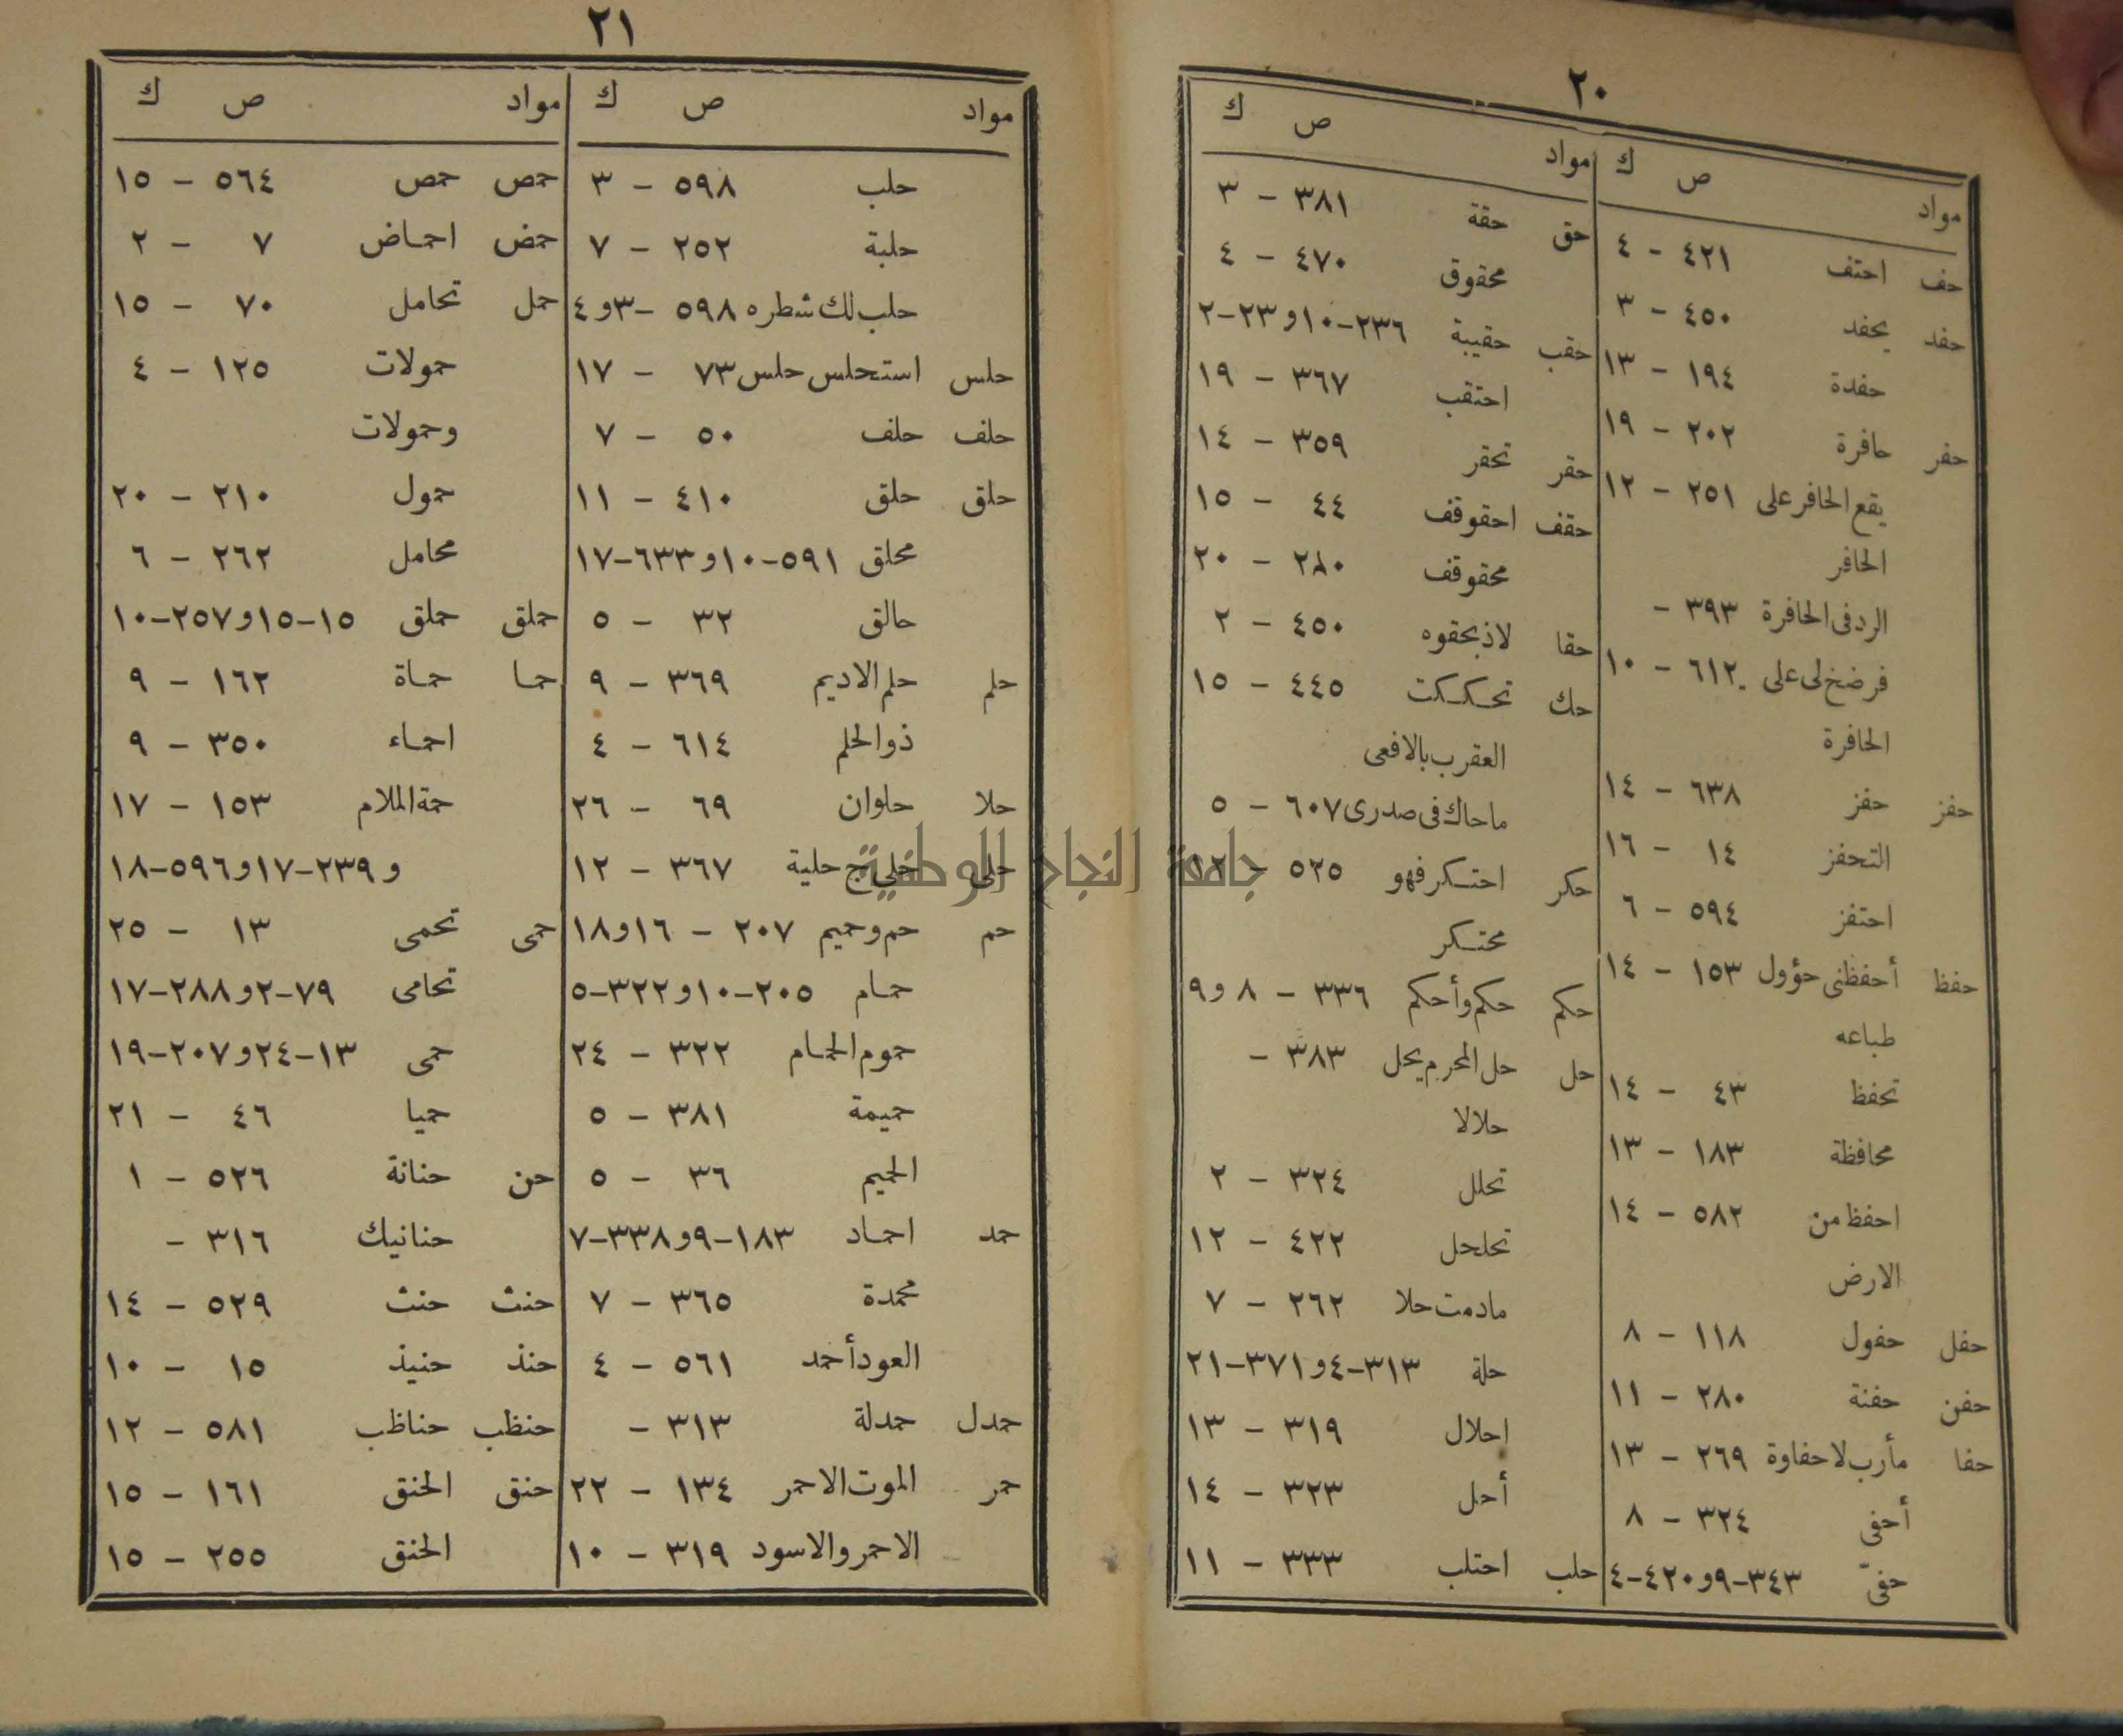 ٢٠
مواد ص ك
حف احتف ٤٢١ – ٤
حفد يحفد ٤٥٠ – ٣
حفدة ١٩٤ – ١٣
حفر حافرة ٢٠٢ – ١٩
يقع الحافر على ٢٥١ – ١٢
الحافر
الرد فى الحافرة ٣٩٣ –
فرضخ لى على ٦١٢ – ١٠
الحافرة
حفز حفز ٦٣٨ – ١٤
التحفز ١٤ – ١٦
احتفز ٥٩٤ – ٦
حفظ أحفظنى حؤول ١٥٣ – ١٤
طباعه
تحفظ ٤٣ – ١٤
محافظة ١٨٣ – ١٣
احفظ من ٥٨٢ – ١٤
الارض
حفل حفول ١١٨ – ٨
حفن حفنة ٢٨٠ – ١١
حفا مأرب لا حفاوة ٢٦٩ – ١٣
أحفى ٣٢٤ – ٨
حفىّ ٣٤٣–٩ و٤٢٠–٤
مواد ص ك
حق حقة ٣٨١ – ٣
محقوق ٤٧٠ – ٤
حقب حقيبة ٢٣٦–١٠ و٢٣–٢
احتقب ٣٦٧ – ١٩
حقر تحقر ٣٥٩ – ١٤
حقف احقوقف ٤٤ – ١٥
محقوقف ٢٨٠ – ٢٠
حقا لاذ بحقوه ٤٥٠ – ٢
حك تحككت ٤٤٥ – ١٥
العقرب بالافعى
ما حاك فى صدرى ٦٠٧ – ٥
حكر احتكر فهو ٥٢٥ – ١٢
محتكر
حكم حكم وأحكم ٣٣٦ – ٨ و٩
حل حل المحرم يحل ٣٨٣ –
حلالا
تحلل ٣٢٤ – ٢
تحلحل ٤٢٢ – ١٢
مادمت حلا ٢٦٢ – ٧
حلة ٣١٣–٤ و٣٧١–٢١
احلال ٣١٩ – ١٣
أحل ٣٢٣ – ١٤
حلب احتلب ٣٣٣ – ١١
٢١
مواد ص ك
حلب ٥٩٨ – ٣
حلبة ٢٥٢ – ٧
حلب لك شطره ٥٩٨ –٣ و٤
حلس استحلس حلس ٧٣ – ١٧
حلف حلف ٥٠ – ٧
حلق حلق ٤١٠ – ١١
محلق ٥٩١–١٠ و٦٣٣–١٧
حالق ٣٢ – ٥
حلم حلم الاديم ٣٦٩ – ٩
ذو الحلم ٦١٤ – ٤
حلا حلوان ٦٩ – ٢٦
حلى حلى ج حلية ٣٦٧ – ١٢
حم حم وحميم ٢٠٧ – ١٦ و١٨
حمام ٢٠٥–١٠ و٣٢٢–٥
حموم الحمام ٣٢٢ – ٢٤
حميمة ٣٨١ – ٥
الحميم ٣٦ – ٥
حمد احماد ١٨٣–٩ و٣٣٨–٧
محمدة ٣٦٥ – ٧
العود أحمد ٥٦١ – ٤
حمدل حمدلة ٣١٣ –
حمر الموت الاحمر ١٣٤ – ٢٢
الاحمر والاسود ٣١٩ – ١٠
مواد ص ك
حمص حمص ٥٦٤ – ١٥
حمض احماض ٧ – ٢
حمل تحامل ٧٠ – ١٥
حمولات ١٢٥ – ٤
وحمولات
حمول ٢١٠ – ٢٠
محامل ٢٦٢ – ٦
حملق حملق ١٥–١٥ و٢٥٧–١٠
حما حماة ١٦٢ – ٩
احماء ٣٥٠ – ٩
حمة الملام ١٥٣ – ١٧
و٢٣٩–١٧ و٥٩٦–١٨
حمى تحمى ١٣ – ٢٥
تحامى ٧٩–٢ و٢٨٨–١٧
حمى ١٣–٢٤ و٢٠٧–١٩
حميا ٤٦ – ٢١
حن حنانة ٥٢٦ – ١
حنانيك ٣١٦ –
حنث حنث ٥٢٩ – ١٤
حنذ حنيذ ١٥ – ١٠
حنظب حناظب ٥٨١ – ١٢
حنق الحنق ١٦١ – ١٥
الحنق ٢٥٥ – ١٥
جامعة النجاح الوطنية